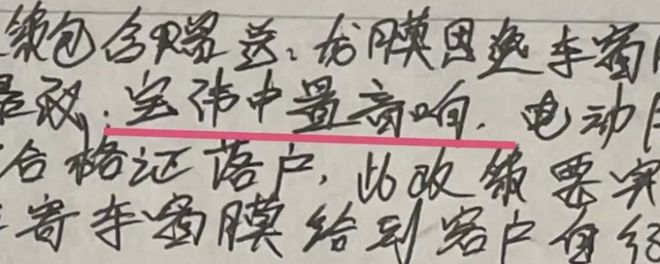 包含赠送，龙膜因选车窗
，宝伟中置高响，电动
合格证落户，此政策要实
寄车窗膜给到客户自